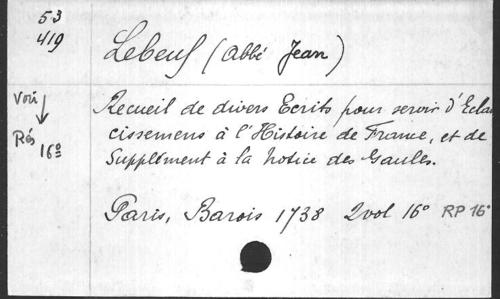 53
419
Lebeuf (Abbé Jean)
Voir
Rés
16º
Recueil de divers Ecrits pour servir d'Eclair
cissemens à l'Histoire de France, et de
Supplément à la Notice des Gaules.
Paris, Barois 1738 2 vol 16º RP 16º